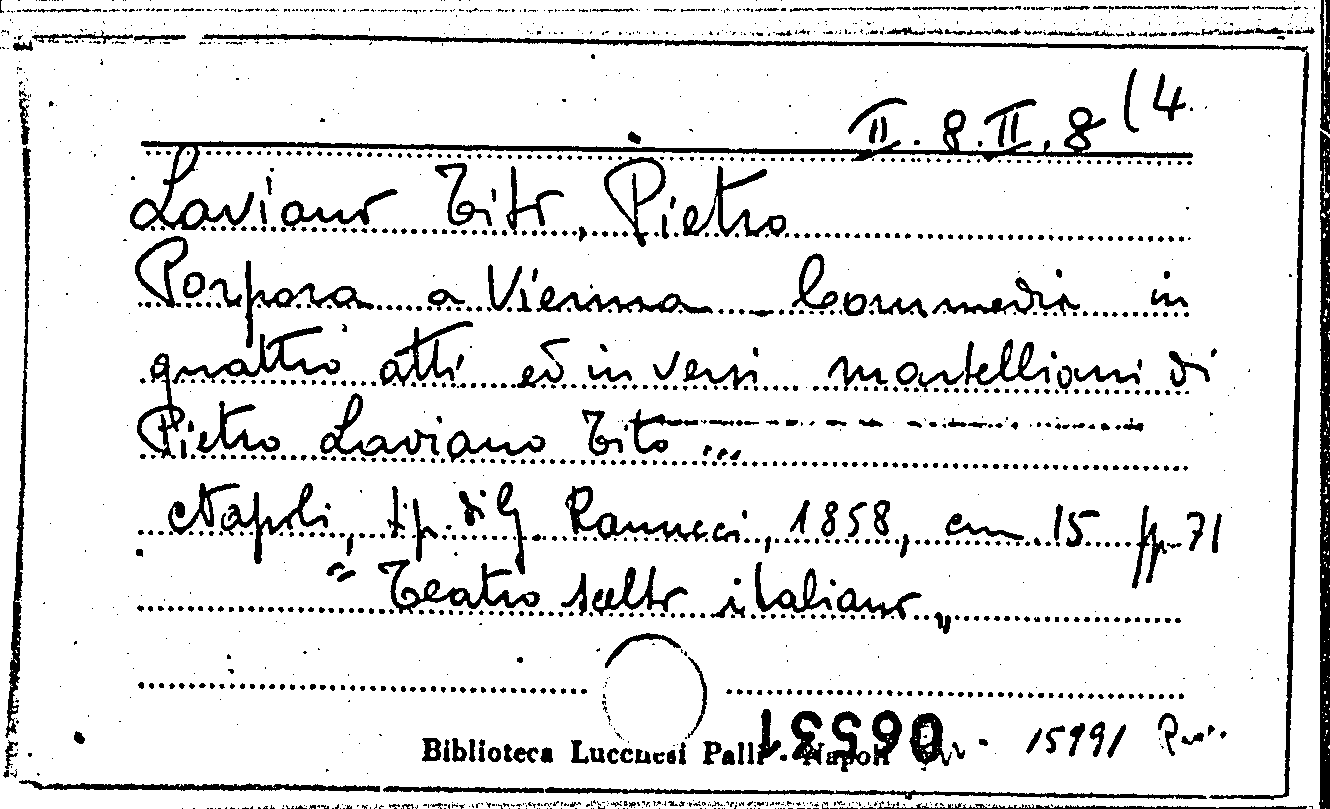 II. 8. II. 8 (4
Laviano Tito, Pietro
Porpora a Vienna - Commedia in
quattro atti ed in versi martelliani di
Pietro Laviano Tito ...
Napoli, tip. di G. Rannucci, 1858, cm. 15 pp. 71
"Teatro scelto italiano"
Biblioteca Lucchesi Palli - Napoli
15991